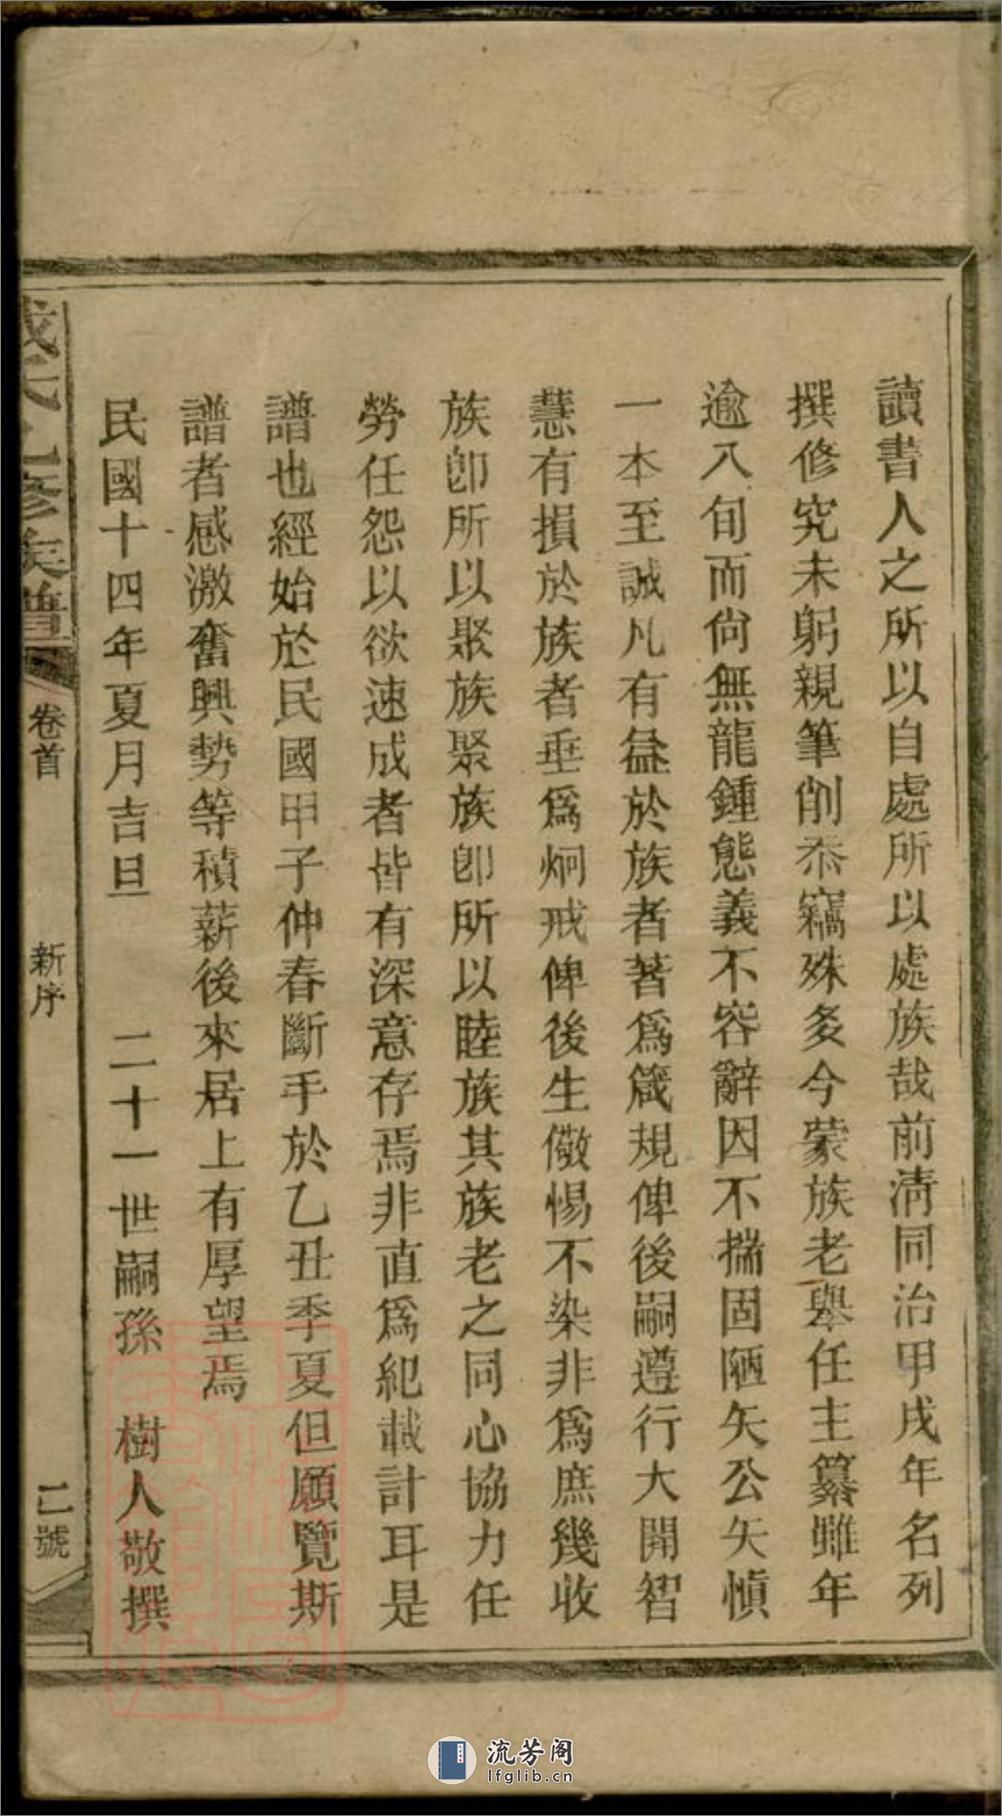 讀書人之所以自處所以處族哉前淸同治甲戌年名列
撰修究未躬親筆削忝竊殊多今蒙族老舉任主纂雖年
逾八旬而尙無龍鍾態義不容辭因不揣固陋矢公矢愼
一本至誠凡有益於族者著爲箴規俾後嗣遵行大開智
慧有損於族者垂爲炯戒俾後生儆惕不染非爲庶幾收
族卽所以聚族聚族卽所以睦族其族老之同心協力任
勞任怨以欲速成者皆有深意存焉非直爲紀載計耳是
譜也經始於民國甲子仲春斷手於乙丑季夏但願覽斯
譜者感激奮興勢等積薪後來居上有厚望焉
民國十四年夏月吉旦 二十一世嗣孫 樹人敬撰
氏 修族譜 卷首 新序 二號
流芳阁
lfglib.cn